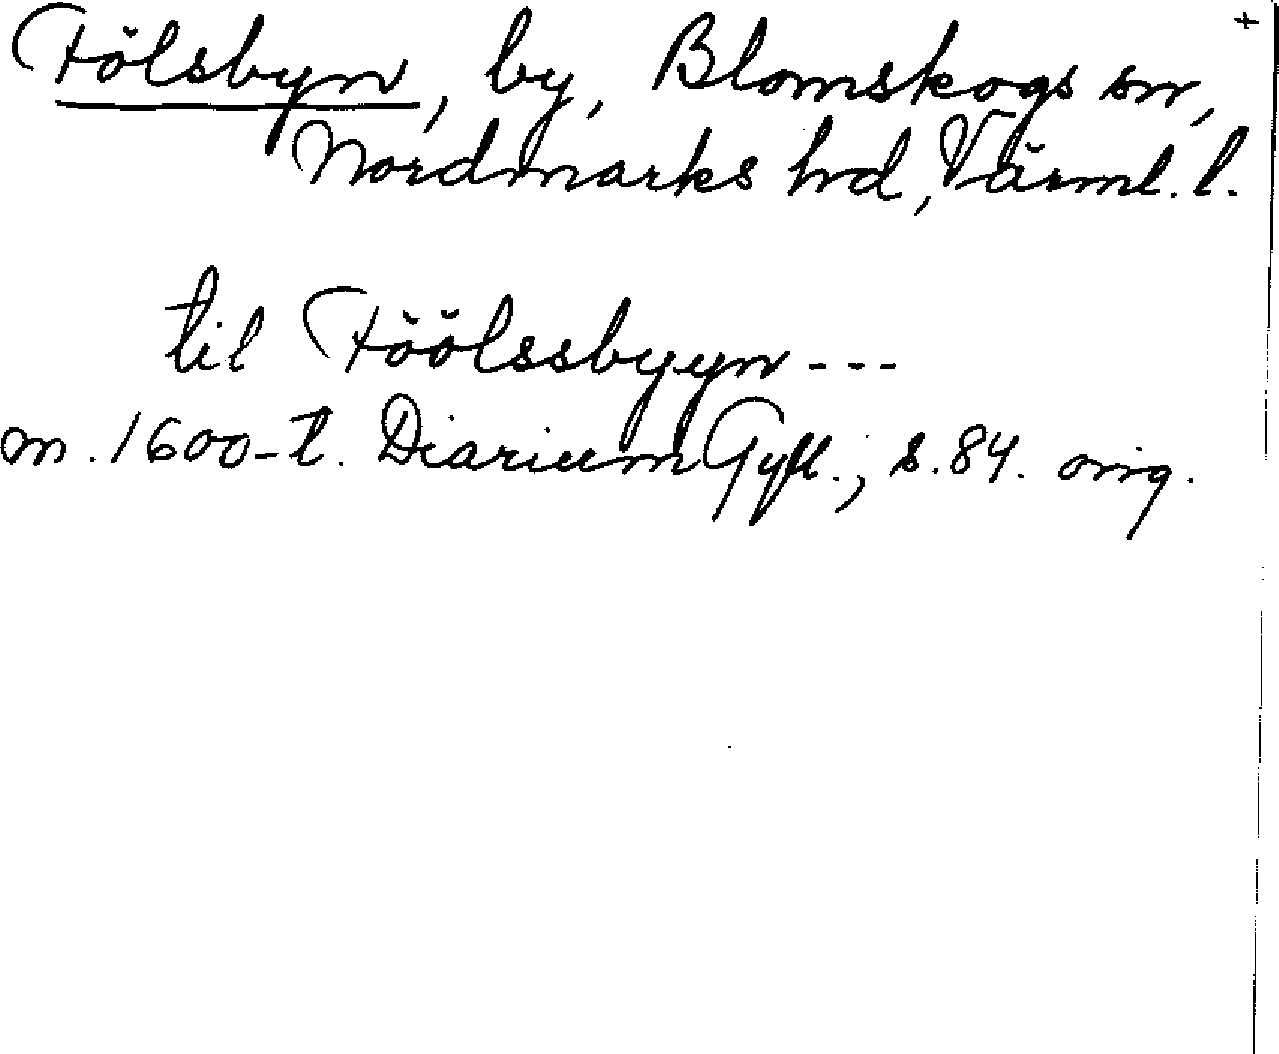 +
Fölsbyn, by, Blomskogs sn,
Nordmarks hd, Värml. l.
til Föölssbyyn - - -
m. 1600-t. Diarium Gyll., s. 84. orig.